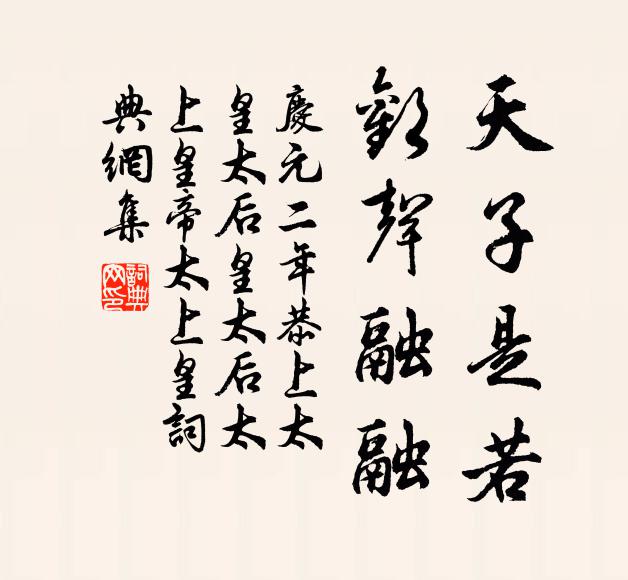 天子是若
歡聲融融
慶元二年恭上太
皇太后皇太后太
上皇帝太上皇詞
典網集
詞典网印